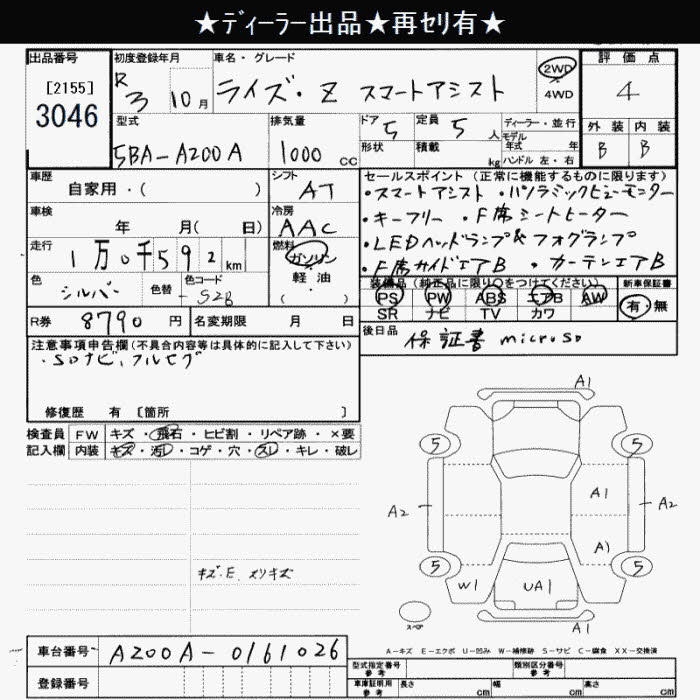 ★ディーラー出品★再セリ有★
出品番号 初度登録年月 車名・グレード 評価点
[2155]
3046
R3 10月 ライズ・Z スマートアシスト 2WD 4WD 4
型式 排気量 ドア 5 定員 5人 ディーラー・並行 外装 内装
5BA-A200A 1000 CC 形状 積載 kg モデル年式 年 B B
ハンドル 左・右
車歴 シフト セールスポイント(正常に機能するものに限ります)
自家用・( ) AT ・スマートアシスト ・パノラミックビューモニター
車検 冷房 ・キーフリー ・F席シートヒーター
年 月( 日) AAC ・LEDヘッドランプ&フォグランプ
走行 燃料 ・F席サイドエアB ・カーテンエアB
1万0千592km ガソリン
色 色替 色コード 軽油 装備品(純正品に限り○をつけてください) 新車保証書
シルバー S28 ( ) PS PW ABS エアB AW 有・無
SR ナビ TV カワ
R券 8790円 名変期限 月 日 後日品
保証書 microSD
注意事項申告欄(不具合内容等は具体的に記入して下さい)
・SDナビ、フルセグ
修復歴 有 [箇所 ]
検査員 FW キズ・飛石・ヒビ割・リペア跡・×要
記入欄 内装 キズ・汚レ・コゲ・穴・スレ・キレ・破レ
キズ・E スリキズ
A1
5 5
A1
A2 A2
A1
5 5
W1 UA1
スペア
A1
A-キズ E-エクボ U-凹み W-補修跡 S-サビ C-腐食 XX-交換済
車台番号 A200A-0161026
登録番号
型式指定番号 参考 類別区分番号 参考
車庫証明用 参考 長さ cm 幅 cm 高さ cm